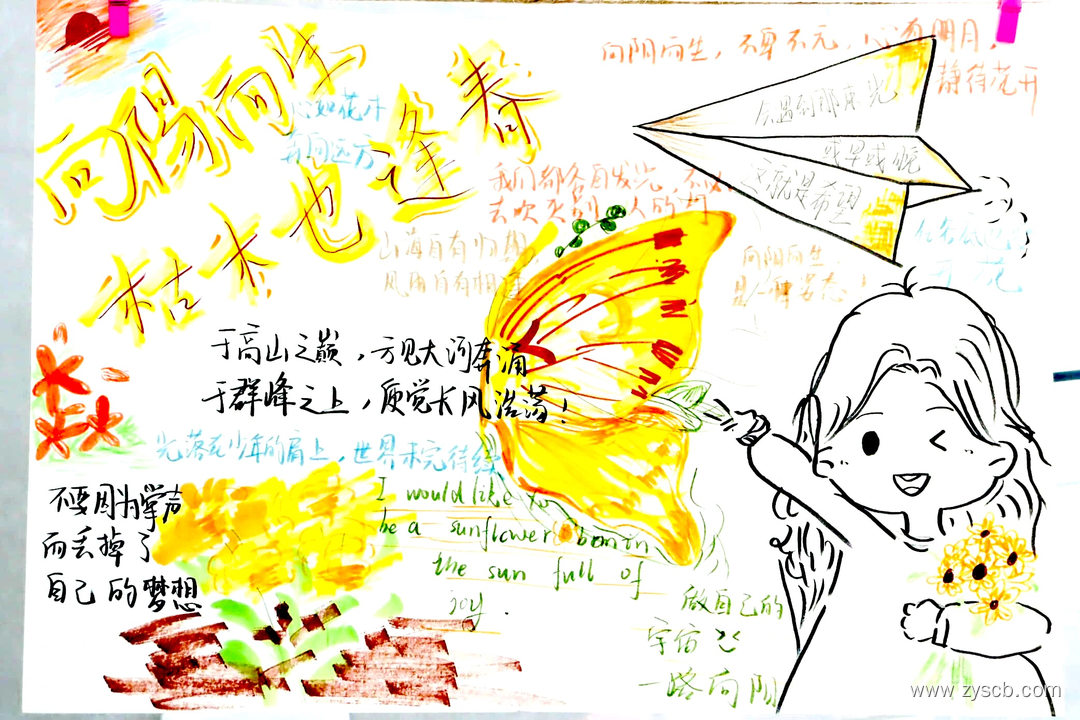 向阳向生
枯木也逢春
心如花木
向阴而生，不卑不亢，心有明月，
静待花开
会遇到那束光
或早或晚
这就是希望
我们都各自发光，不必
去吹灭别人的灯
山海自有归期
风雨自有相逢
向阳而生
是一种姿态！
于高山之巅，方见大河奔涌
于群峰之上，更觉长风浩荡！
光落在少年的肩上，世界未完待续
不要因为掌声
而丢掉了
自己的梦想
I would like to
be a sunflower born in
the sun full of
joy.
做自己的
宇宙
一路向阳
www.zyscb.com